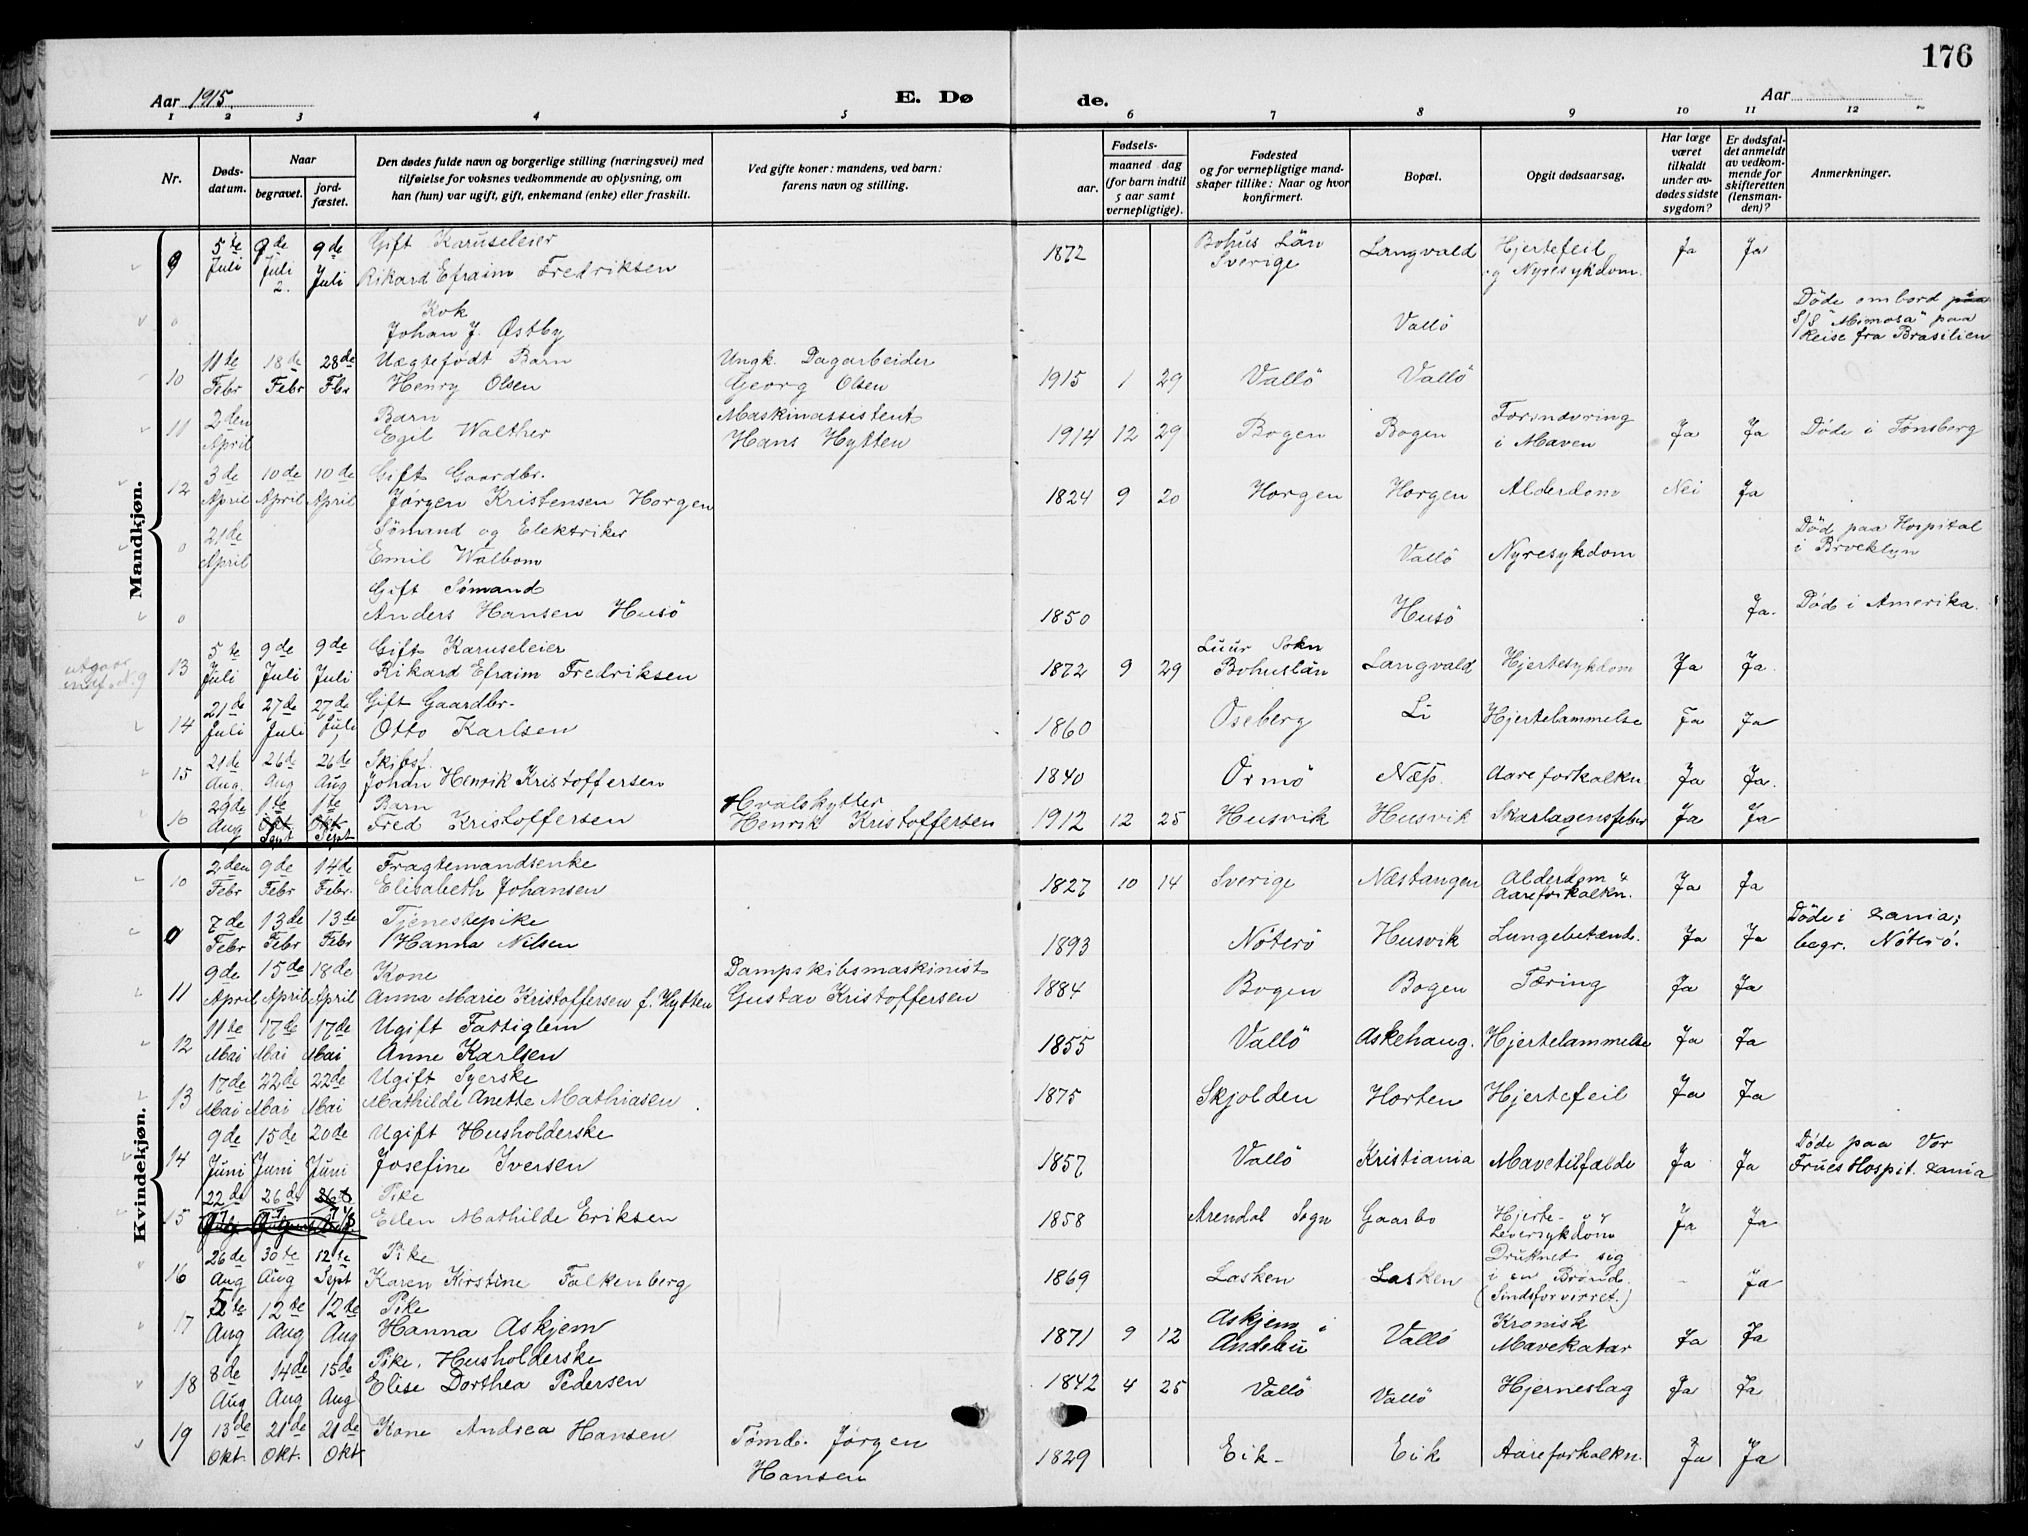 176
Aar 1915.
E. Dø de.
Aar
1 2 3 4 5 6 7 8 9 10 11 12
Nr.
Døds-datum.
Naar
begravet.
jord-fæstet.
Den dødes fulde navn og borgerlige stilling (næringsvei) med tilføielse for voksnes vedkommende av oplysning, om han (hun) var ugift, gift, enkemand (enke) eller fraskilt.
Ved gifte koner: mandens, ved barn: farens navn og stilling.
Fødsels-
aar.
maaned dag
(for barn indtil 5 aar samt vernepligtige).
Fødested og for vernepligtige mandskaper tillike: Naar og hvor konfirmert.
Bopæl.
Opgit dødsaarsag.
Har læge været tilkaldt under avdødes sidste sygdom?
Er dødsfaldet anmeldt av vedkommende for skifteretten (lensmanden)?
Anmerkninger.
Mandkjøn.
9 5te Juli 9de Juli 2. 9de Juli Gift Karuseleier Rikard Efraim Fredriksen 1872 Bohus Län Sverige Langvald Hjertefeil og Nyresykdom. Ja Ja
0 Kok Johan J. Østby Vallö Döde ombord paa i S/S "Mimosa" paa Reise fra Brasilien
10 11te Febr 18de Febr 28de Fbr Uægtefödt Barn Henry Olsen Ungk. Dagarbeider Georg Olsen 1915 1 29 Vallö Vallö
11 2den April Barn Egil Walther Maskinassistent Hans Hytten 1914 12 29 Bogen Bogen Forsnevring i Maven Ja Ja Döde i Tönsberg
12 3de April 10de April 10de April Gift Gaardbr. Jørgen Kristensen Horgen 1824 9 20 Horgen Horgen Alderdom Nei Ja
0 21de April Sömand og Elektriker Emil Walbom Vallö Nyresykdom Död paa Hospital i Brooklyn
0 Gift Sömand Anders Hansen Husö 1850 Husö Ja. Död i Amerika.
utgaar indf. N. 9
13 5te Juli 9de Juli 9de Juli Gift Karuseleier Rikard Efraim Fredriksen 1872 9 29 Luur Sokn Bohuslän Langvald Hjertesykdom Ja Ja
14 21de Juli 27de Juli 27de Juli Gift Gaardbr. Otto Karlsen 1860 Oseberg Li Hjertelammelse Ja Ja
15 21de Aug. 26de Aug 26de Aug Skibsf. Johan Henrik Kristoffersen 1840 Ormö Næs. Aareforkalkn. Ja Ja.
16 29de Aug 1te Okt Sept 1te Okt Sept Barn Fred Kristoffersen Hvalskytter Henrik Kristoffersen 1912 12 25 Husvik Husvik Skarlagensfeber Ja Ja
Kvindekjøn.
10 2den Febr 9de Febr 14de Febr. Fragtemandsenke Elisabeth Johansen 1827 10 14 Sverige Næstangen Alderdom & Aareforkalkn. Ja Ja
0 7de Febr 13de Febr 13de Febr Tjenestepike Hanna Nilsen 1893 Nöterö Husvik Lungebetænd. Ja Ja Döde i xania; begr. Nöterö.
11 9de April 15de April 18de April Kone Anna Marie Kristoffersen f. Hytten Dampskibsmaskinist Gustav Kristoffersen 1884 Bogen Bogen Tæring Ja Ja
12 11te Mai 17de Mai 17de Mai Ugift Fattiglem Anne Karlsen 1855 Vallö Askehaug. Hjertelammelse Ja Ja
13 17de Mai 22de Mai 22de Mai Ugift Syerske Mathilde Anette Mathiasen 1875 Skjolden Horten Hjertefeil Ja Ja
14 9de Juni 15de Juni 20de Juni Ugift Husholderske Josefine Iversen 1857 Vallö Kristiania Mavetilfælde Ja Ja Döde paa Vor Frues Hospit. xania
15 22de 26de 26de Pike Ellen Mathilde Eriksen 1858 Arendal Sogn Gaarbo Hjerte- og Leversykdom Ja Ja
16 26de Aug 30te Aug 12te Sept Pike Karen Kirstine Falkenberg 1869 Lasken Lasken Druknet sig i en Brönd. (Sindsforvirret.) - Ja
17 5te Aug 12te Aug 12te Aug Pike Hanna Askjem 1871 9 12 Askjem i Andebu Vallö Kronisk Mavekatar Ja Ja
18 8de Aug 14de Aug 15de Aug Pike. Husholderske Elise Dorthea Pedersen 1842 4 25 Vallö Vallö Hjerneslag Ja Ja
19 13de Okt. 21de Okt. 21de Okt Kone Andrea Hansen Tömd. Jørgen Hansen 1829 Eik - Eik Aareforkalkn. Ja Ja